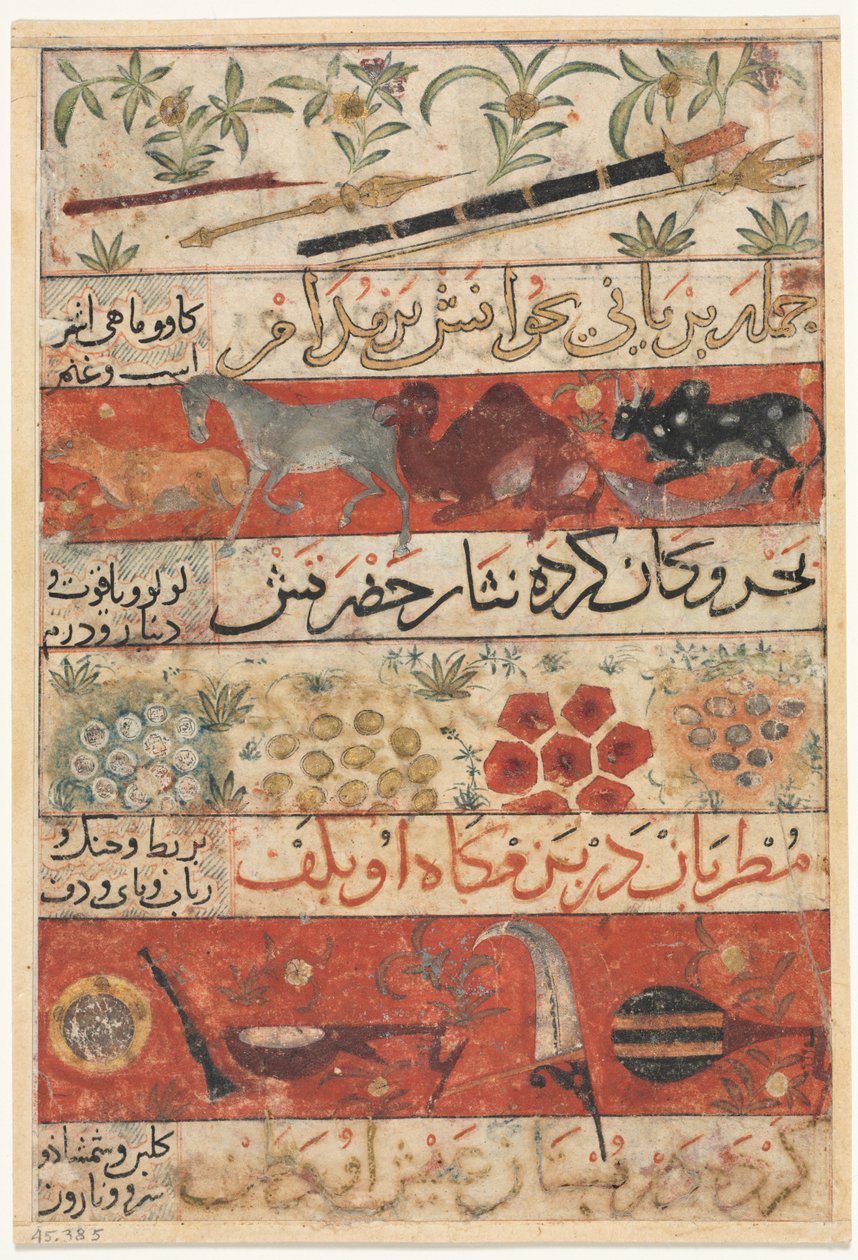 جمله بریانی بخوانش بر مدام
کاو و ماهی اشتر
اسب و غنم
بحر و کان کرده نثار حضرتش
لولو و یاقوت و
دینار و درم
مطربان در بزمکاه او بکف
بربط و جنک و
رباب و نای و دف
کرده در بستان عیش او وطن
کلبن و شمشاد و
سرو و نارون
45.385